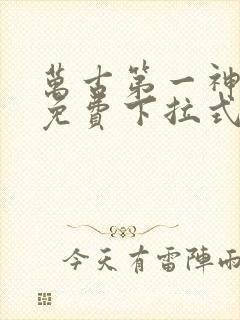 萬古第一神
免費下拉式
今天有雷陣雨